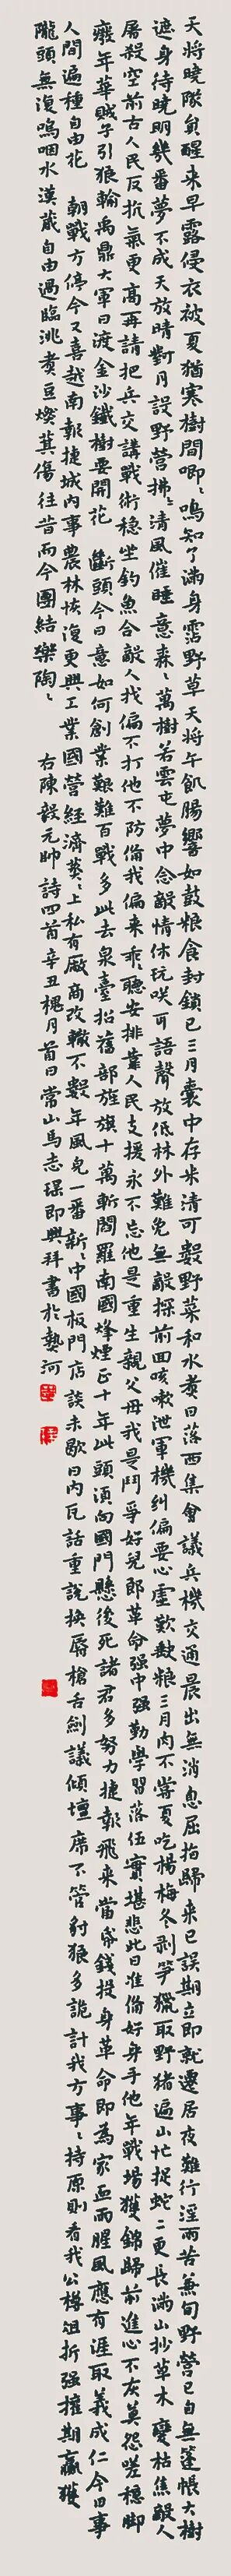 天將曉隊員醒來早露侵衣被夏猶寒樹間唧々鳴知了滿身霑野草天將午飢腸響如鼓粮食封鎖已三月囊中存米清可數野菜和水煮日落西集會議兵機交通晨出無消息屈指歸來已誤期立即就遷居夜難行淫雨苦兼旬野營已自無篷帳大樹
遮身待曉明幾番夢不成天放晴對月設野營拂々清風催睡意森々萬樹若雲屯夢中念敵情休玩咲耳語聲放低林外難免無敵探前回咳嗽泄軍機糾偏要心虛歎缺粮三月肉不嘗夏吃楊梅冬剝笋獵取野猪遍山忙捉蛇二更長滿山抄草木變枯焦敵人
屠殺空前古人民反抗氣更高再請把兵交講戰術穩坐釣魚台敵人找偏不打他不防備我偏來乖聽安排靠人民支援永不忘他是重生親父母我是鬥爭好兒郎革命强中强勤學習落伍實堪悲此日準備好身手他年戰場獲錦歸前進心不灰莫怨嗟穩脚
癡年華賊子引狼輸禹鼎大軍日渡金沙鐵樹要開花 斷頭今日意如何創業艱難百戰多此去泉臺招舊部旌旗十萬斬閻羅南國烽煙正十年此頭須向國門懸後死諸君多努力捷彰飛來當帋錢投身革命即為家血雨腥風應有涯取義成仁今日事
人間遍種自由花 朝戰方停今又喜越南彰捷城內事農林恢復更興工業國營經濟蒸々上私有廠商改轍不數年風皃一番新中國板門店談未歇日內瓦話重說挾脣槍舌劍議傾壇席不管豺狼多詭計我方事々持原則看我公樽俎折强擁期贏獲
隴頭無復嗚咽水漢藏自由遇臨洮煮豆燃萁傷往昔而今團結樂陶々 右陳毅元帥詩四首辛丑槐月首日常山馬志 即興拜書於 河